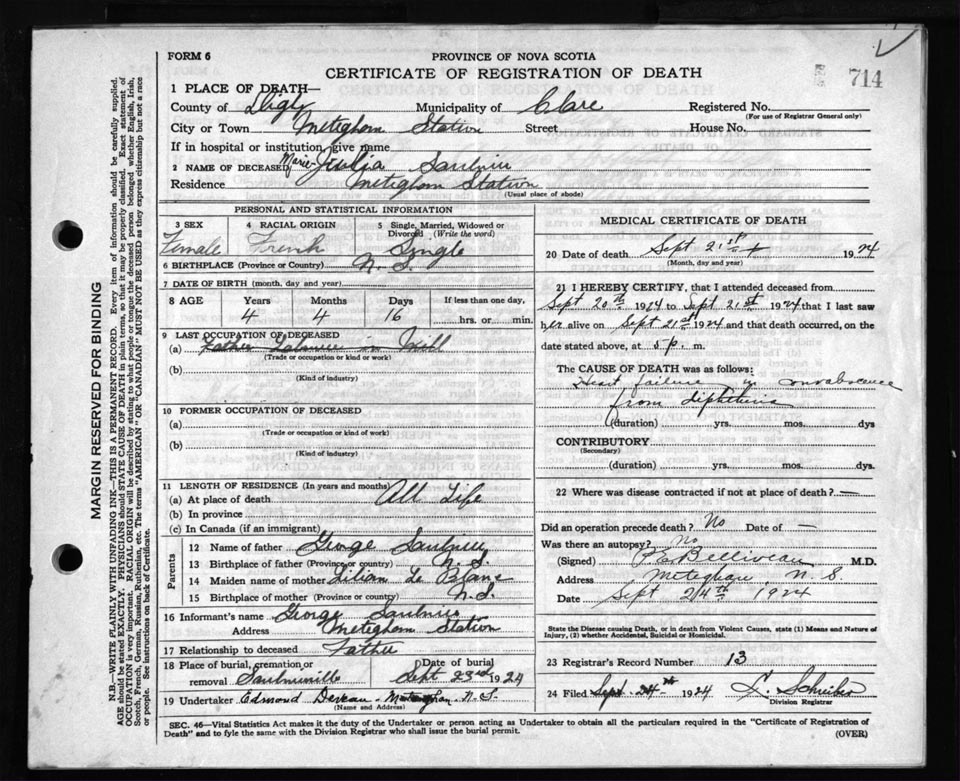 FORM 6
PROVINCE OF NOVA SCOTIA
CERTIFICATE OF REGISTRATION OF DEATH
714
1 PLACE OF DEATH—
County of Digby Municipality of Clare Registered No.
(For use of Registrar General only)
City or Town Meteghan Station Street House No.
If in hospital or institution, give name
2 NAME OF DECEASED Marie Julia Saulnier
Residence Meteghan Station
(Usual place of abode)
PERSONAL AND STATISTICAL INFORMATION
3 SEX 4 RACIAL ORIGIN 5 Single, Married, Widowed or Divorced (Write the word)
Female French Single
6 BIRTHPLACE (Province or Country) N. S.
7 DATE OF BIRTH (month, day and year)
8 AGE Years Months Days If less than one day,
4 4 16 hrs. or min.
9 LAST OCCUPATION OF DECEASED
(a) Father Labourer in Mill
(Trade or occupation or kind of work)
(b)
(Kind of industry)
10 FORMER OCCUPATION OF DECEASED
(a)
(Trade or occupation or kind of work)
(b)
(Kind of industry)
11 LENGTH OF RESIDENCE (In years and months)
(a) At place of death All Life
(b) In province
(c) In Canada (if an immigrant)
Parents
12 Name of father George Saulnier
13 Birthplace of father (Province or country) N. S.
14 Maiden name of mother Liliam Le Blanc
15 Birthplace of mother (Province or country) N. S.
16 Informant's name George Saulnier
Address Meteghan Station
17 Relationship to deceased Father
18 Place of burial, cremation or removal Saulnierville Date of burial Sept 23rd 1924
19 Undertaker Edmond Deveau Meteghan N. S.
(Name and Address)
MEDICAL CERTIFICATE OF DEATH
20 Date of death Sept 21st 1924
(Month, day and year)
21 I HEREBY CERTIFY, that I attended deceased from
Sept 20th 1924 to Sept 21st 1924 that I last saw
her alive on Sept 21st 1924 and that death occurred, on the
date stated above, at 5 p. m.
The CAUSE OF DEATH was as follows:
Heart failure in convalescence
from diphtheria
(duration) yrs. mos. dys
CONTRIBUTORY
(Secondary)
(duration) yrs. mos. dys.
22 Where was disease contracted if not at place of death? —
Did an operation precede death? No Date of —
Was there an autopsy? No
(Signed) Belliveau M.D.
Address Meteghan, N. S.
Date Sept 24th 1924
State the Disease causing Death, or in death from Violent Causes, state (1) Means and Nature of
Injury, (2) whether Accidental, Suicidal or Homicidal.
23 Registrar's Record Number 13
24 Filed Sept 24th 1924 Schriber
Division Registrar
SEC. 46—Vital Statistics Act makes it the duty of the Undertaker or person acting as Undertaker to obtain all the particulars required in the "Certificate of Registration of
Death" and to fyle the same with the Division Registrar who shall issue the burial permit.
(OVER)
MARGIN RESERVED FOR BINDING
N.B.—WRITE PLAINLY WITH UNFADING INK—THIS IS A PERMANENT RECORD. Every item of information should be carefully supplied.
AGE should be stated EXACTLY. PHYSICIANS should STATE CAUSE OF DEATH in plain terms, so that it may be properly classified. Exact statement of
OCCUPATION is very important. RACIAL ORIGIN will be described by stating to what people or tongue the deceased person belonged whether English, Irish,
Scotch, French, German, Russian, Ruthenian, etc. The terms "AMERICAN" OR "CANADIAN" MUST NOT BE USED as they express citizenship but not a race
or people. See instructions on back of Certificate.